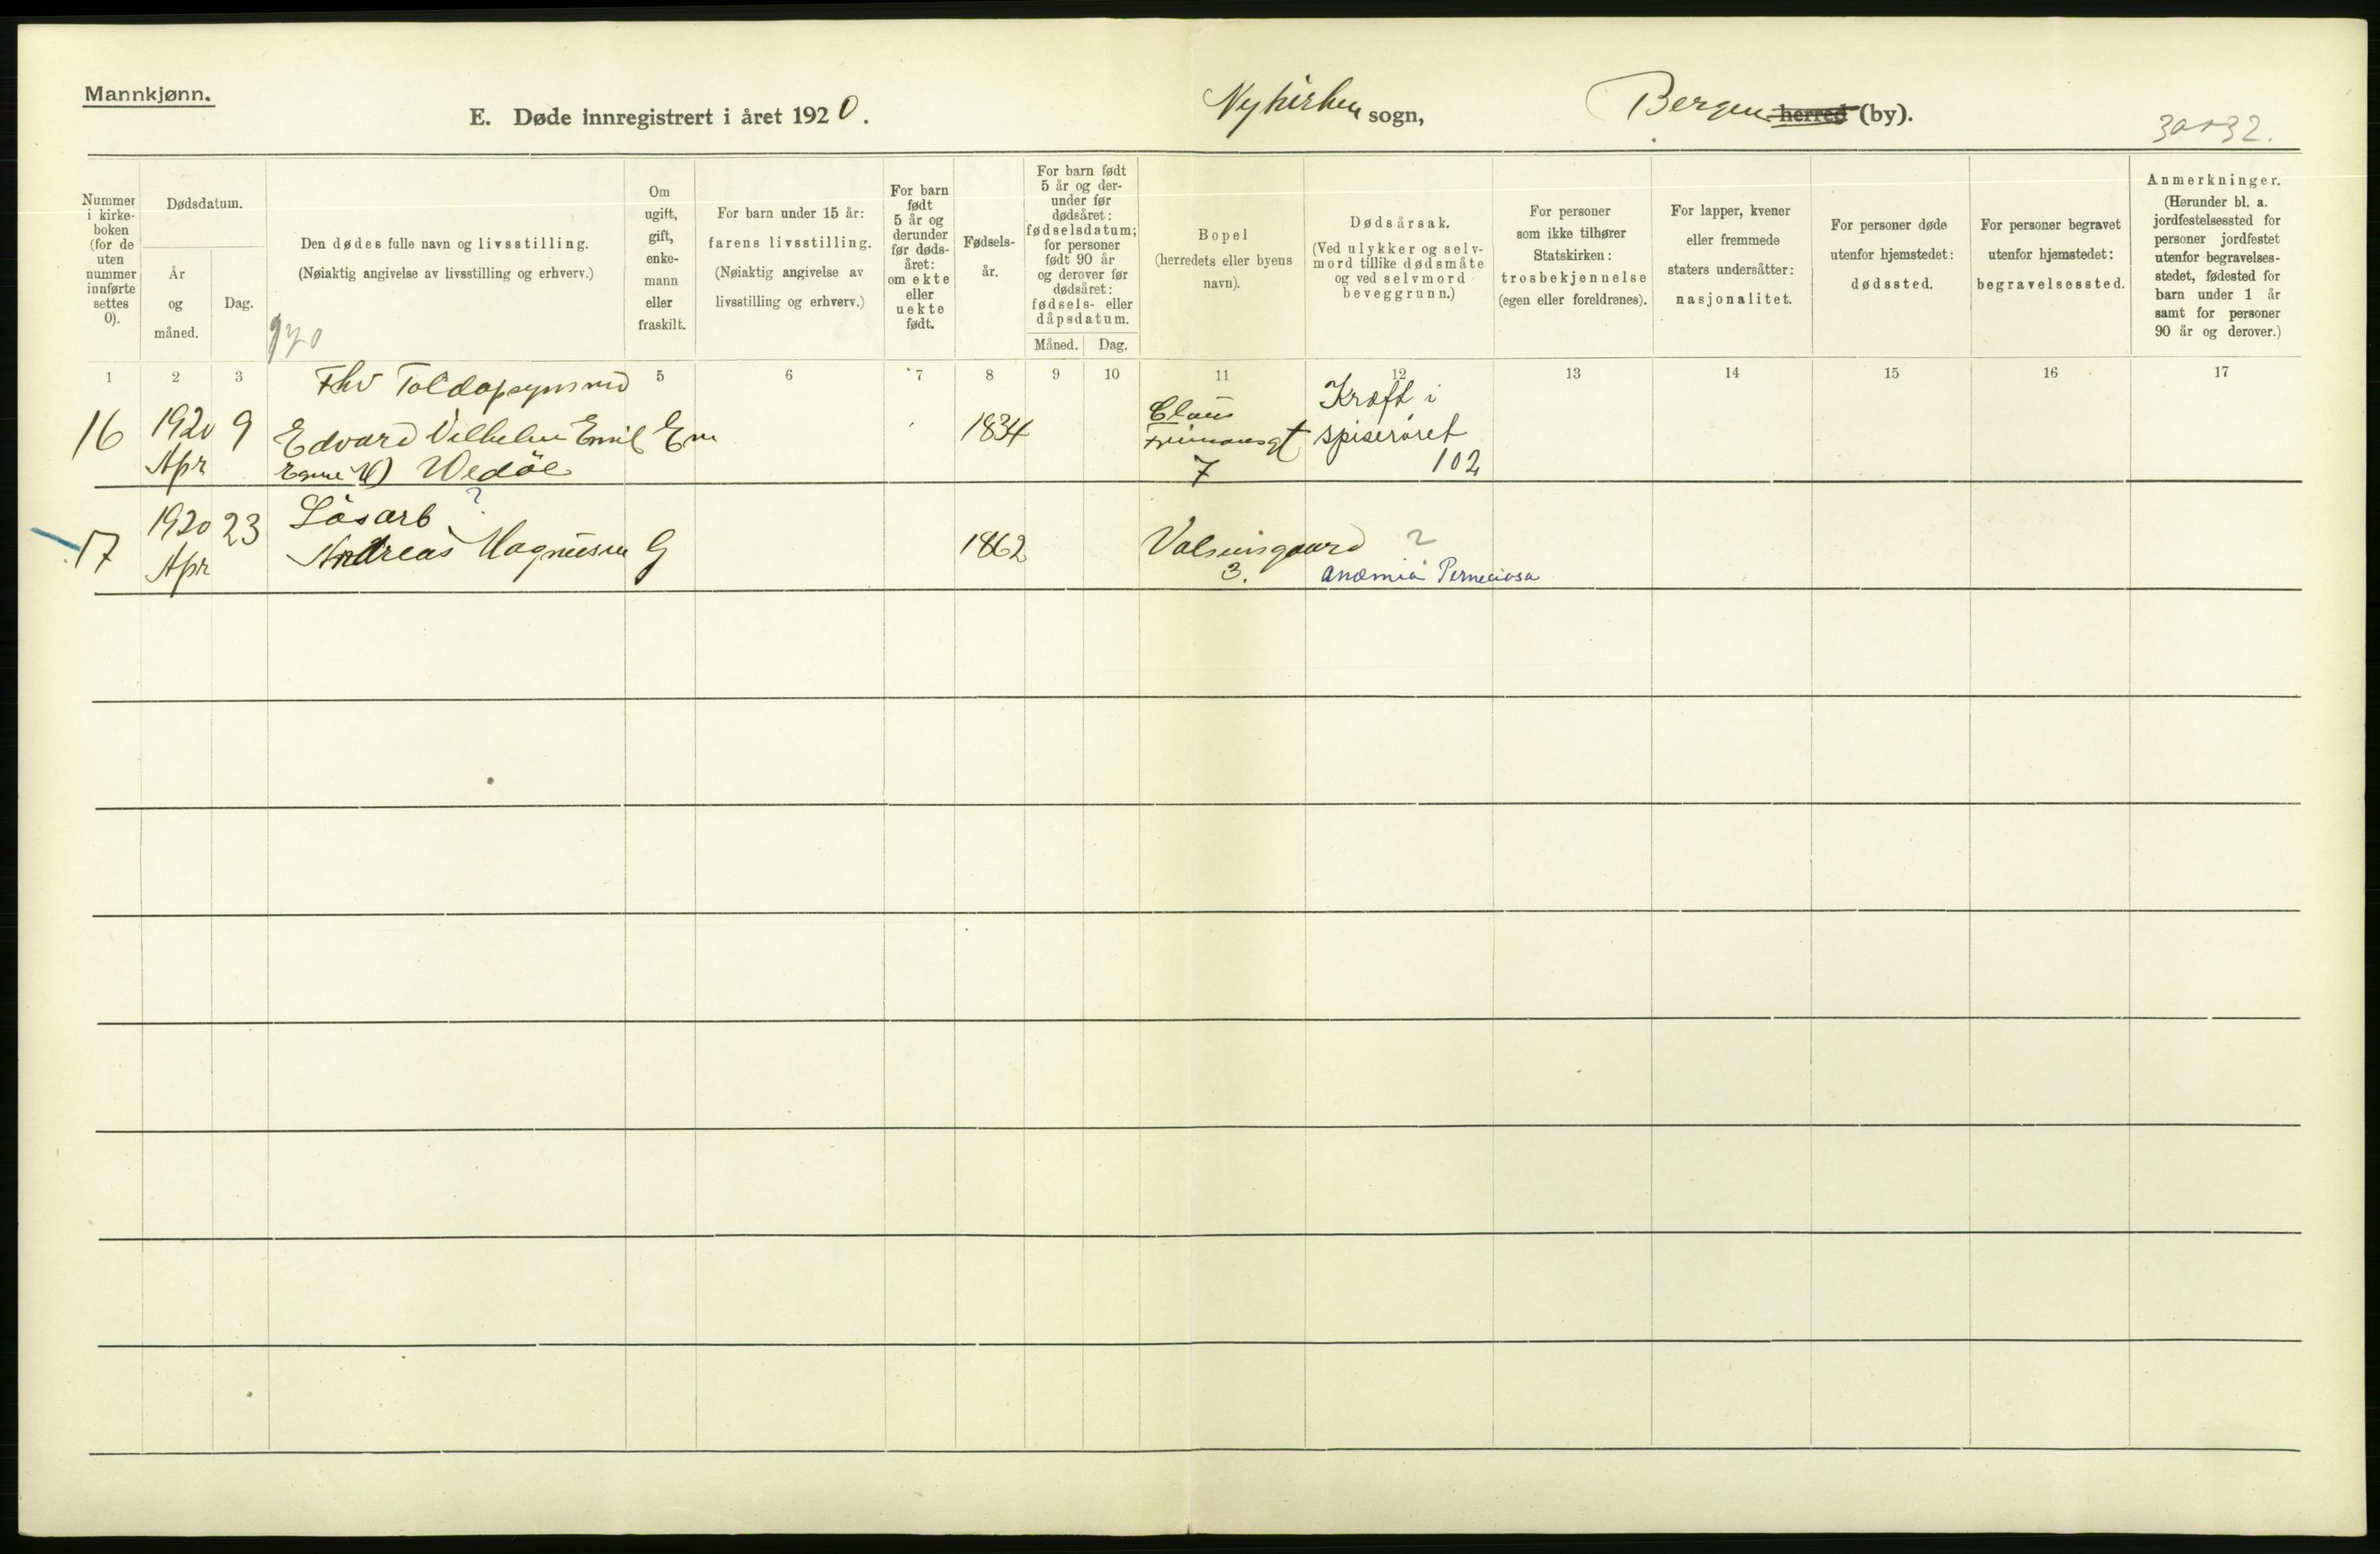 Mannkjønn.
E. Døde innregistrert i året 1920.
Nykirken sogn,
Bergen herred (by).
Nummer i kirke- boken (for de uten nummer innførte settes 0).
Dødsdatum.
År og måned.
Dag.
Den dødes fulle navn og livsstilling.
(Nøiaktig angivelse av livsstilling og erhverv.)
Om ugift, gift, enke- mann eller fraskilt.
For barn under 15 år:
farens livsstilling.
(Nøiaktig angivelse av
livsstilling og erhverv.)
For barn født 5 år og derunder før døds- året: om ekte eller uekte født.
Fødsels- år.
For barn født 5 år og der- under før dødsåret: fødselsdatum; for personer født 90 år og derover før dødsåret: fødsels- eller dåpsdatum.
Måned.
Dag.
Bopel
(herredets eller byens
navn).
Dødsårsak.
(Ved ulykker og selv-
mord tillike dødsmåte
og ved selvmord
beveggrunn.)
For personer
som ikke tilhører
Statskirken:
trosbekjennelse
(egen eller foreldrenes).
For lapper, kvener
eller fremmede
staters undersåtter:
nasjonalitet.
For personer døde
utenfor hjemstedet:
dødssted.
For personer begravet
utenfor hjemstedet:
begravelsessted.
Anmerkninger.
(Herunder bl. a.
jordfestelsessted for
personer jordfestet
utenfor begravelses-
stedet, fødested for
barn under 1 år
samt for personer
90 år og derover.)
1 2 3 5 6 7 8 9 10 11 12 13 14 15 16 17
Fhv Toldopsynsmd
16 1920 Apr 9 Edvard Vilhelm Emil Em 1834
Wedøe
Claus
gt
7
Kræft i
spiserøret
102
?
Løsarb
17 1920 Apr 23 Andreas Magnusen G 1862
3.
?
Anæmia Perneciosa